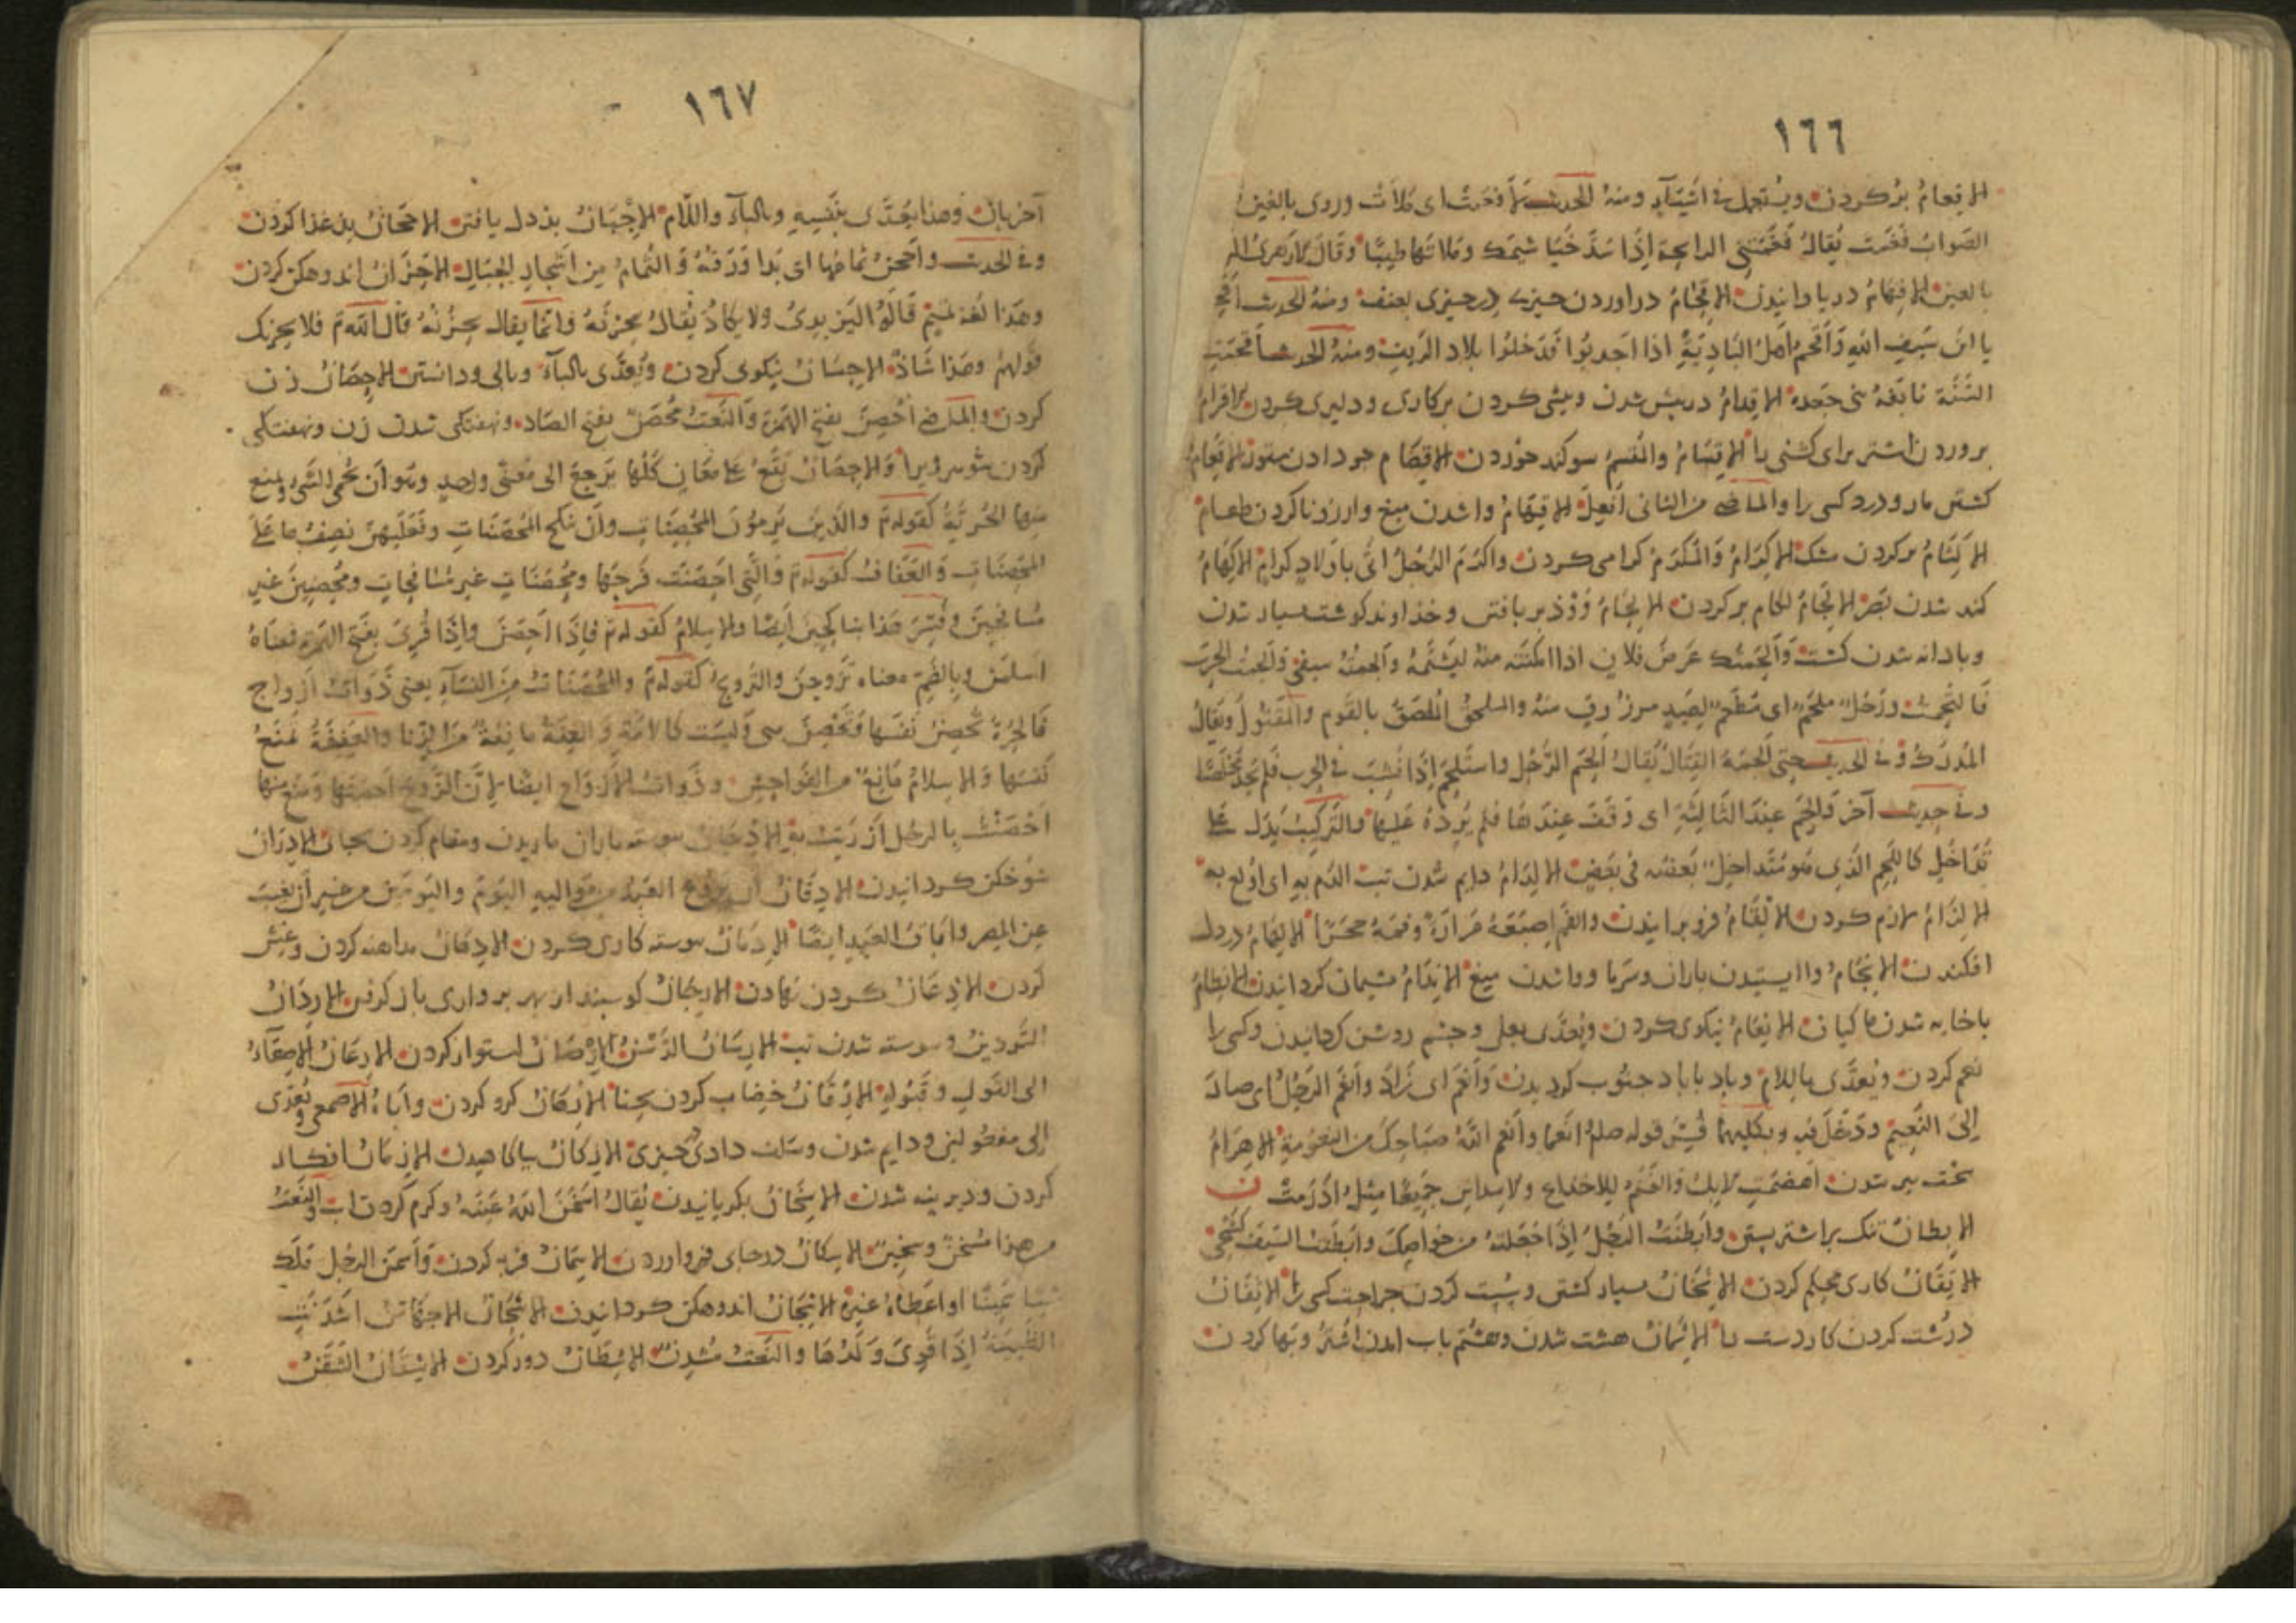 ١٦٦
الافعام پر کردن ویستعمل فی اشیاء ومنه الحدیث لافعمت ای ملأت وروی بالغین
الصواب فغمت یقال فغمتنی الرایحة اذا سد خیاشیمک وملأتها طیبا وقال الازهری
بالعین الافهام دریاوانیدن الاقحام دراوردن چیزی در چیزی بعنف ومنه الحدیث اقحم
یا ابن سیف الله واقحم اهل البادیة اذا اجدبوا فدخلوا بلاد الریف ومنه الحدیث اقحمت
السنة نابغة بنی جعدة الاقدام درپیش شدن وپیشی کردن برکاری ودلیری کردن الاقرام
بروردن اشتر برای کشنی را الاقسام والقسم سوکند خوردن الاقضام جو دادن ستور الاقعام
کشتن مار ودرد کسی را والماضی من الثانی افعل الاقهام واشدن میغ وارزوناکردن طعام
الاکتام پر کردن مشک الاکرام والمکرم کرامی کردن واکرم الرجل اتی باولاد کرام الاکهام
کند شدن بصر الالجام لکام بر کردن الالحام وخداوند کوشت بسیار شدن
وبادانه شدن کشت والحمتک عرض فلان اذا امکنته منه لیشتمه والحمته سیفی والحمت الحرب
فالتحمت ورجل ملحم ای مطعم لصید مرزوق منه والملحق الملصق بالقوم والمقتول ویقال
المدرک وفی الحدیث حتی الحمه القتال یقال الحم الرجل واستلحم اذا نشب فی الحرب فلم یجد مخلصا
وفی حدیث آخر والحم عند الثالثة ای وقف عندها فلم یرده علیها والترکیب یدل علی
تداخل کاللحم الذی هو متداخل بعضه فی بعض الالدام دایم شدن تب الدم به ای اولع به
الالزام لازم کردن الالقام فرو برانیدن والقم اصبعه مرارة وفمه حجرا الالهام دردل
افکندن الانجام واایستیدن باران وسرما وواشدن میغ الاندام پشیمان کردانیدن الانظام
باخایه شدن ماکیان الانعام نیکوی کردن ویعدی بعلی وچشم روشن کردانیدن وکسی را
نعم کردن ویعدی باللام وباد باباد جنوب کردیدن وانعم ای زاد وانعم الرجل ای صار
الی النعیم ودخل فیه وبکلیهما فسر قوله صلعم انعما وانعم الله صباحک من النعومة الاهرام
سخت پیر شدن اهضمت الابل والغنم للاجذاع والاسداس جمیعا مثل ادرمت ن
الابطان تنک براشتر بستن وابطنت الرجل اذا جعلته من خواصک وابطنت السیف کشحی
الاتقان کاری محکم کردن الاثخان بسیار کشتن وسست کردن جراحت کسی را الاثفان
درشت کردن کار دست را الاثمان هشت شدن وهشتم باب امدن اشتر وبها کردن
١٦٧
آخریان وهذا یعدی بنفسه وبالباء واللام الاجبان بددل یافتن الاجحان بدغذا کردن
وفی الحدیث واحجن ثمامها ای بدا ورقه والثمام من اشجار الجبال الاحزان اندوهکن کردن
وهذا لغة تمیم قاله الیزیدی ولا یکاد یقال یحزنه وانما یقال یحزنه قال الله تم فلا یحزنک
قولهم وهذا شاذ الاحسان نیکوی کردن ویعدی بالباء وبالی ودانستن الاحصان زن
کردن والماضی احصن بفتح الهمزة والنعت محصن بفتح الصاد ونهفتکی شدن زن ونهفتکی
کردن شوهر ویرا والاحصان یقع علی معان کلها یرجع الی معنی واحد وهو ان یحمی الشیء ویمنع
منها الحریة کقوله تم والذین یرمون المحصنات وان ینکح المحصنات وفعلیهن نصف ما علی
المحصنات والعفاف کقوله تم والتی احصنت فرجها ومحصنات غیر مسافحات ومحصنین غیر
مسافحین وفسر هذا بناکحین ایضا والاسلام کقوله تم فاذا احصن واذا قرئ بفتح الهمزة فمعناه
اسلمن وبالضم معناه تزوجن والتزوج کقوله تم والمحصنات من النساء یعنی ذوات ازواج
فالحرة تحصن نفسها وتحصن هی ولیست کالامة والعفة مانعة من الزنا والعفیفة تمنع
نفسها والاسلام مانع من الفواحش وذوات الازواج ایضا لان الزوج احصنها ومنع منها
احضنت بالرجل ازریت به الادجان پیوسته باران باریدن ومقام کردن بجای الادران
شوخکن کردانیدن الادفان ان یروغ العبد من موالیه الیوم والیومین من غیر ان یغیب
عن المصر واباق العبد ایضا الادمان پیوسته کاری کردن الادهان مداهنه کردن وغش
کردن الاذعان کردن نهادن الارجان کوسبند از بهر پرواری باز کرفتن الاردان
التردین وپیوسته شدن تب الارسان الرسن الارصان استوار کردن الارعان الاصغاء
الی القول وقبوله الارقان خضاب کردن بحنا الارهان کرو کردن واباه الاصمعی ویعدی
الی مفعولین ودایم شدن وسلف دادن چیزی الازکان بیاکاهیدن الازمان افکار
کردن ودیرینه شدن الاسخان بکریانیدن یقال اسخن الله عینه وکرم کردن آب والنعت
من هذا مسخن وسخین الاسکان درجای فرو اوردن الاسمان فربه کردن واسمن الرجل ملک
شیئا سمینا او اعطاه غیره الاشجان اندوهکن کردانیدن الاشحان الاجهاش اشدنت
الظبیة اذا قوی ولدها والنعت مشدن الاشطان دور کردن الاشفان الشفن